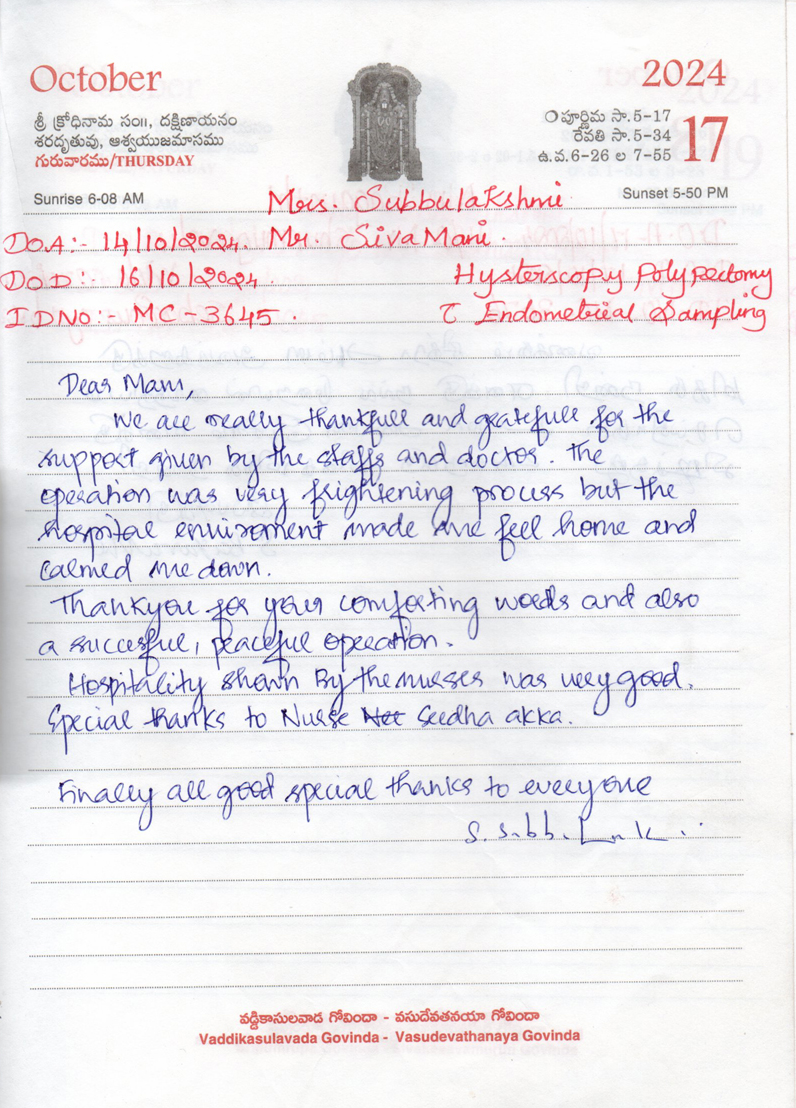 October
2024
శ్రీ క్రోధినామ సం॥, దక్షిణాయనం
శరదృతువు, ఆశ్వయుజమాసము
గురువారము/THURSDAY
పూర్ణిమ సా.5-17
రేవతి సా.5-34
ఉ.వ.6-26 ల 7-55
17
Sunrise 6-08 AM
Sunset 5-50 PM
Mrs. Subbulakshmi
D.O.A:- 14/10/2024. Mr. SivaMani.
D.O.D:- 16/10/2024. Hysterscopy Polypectomy
ID NO:- MC-3645. c̄ Endometrial Sampling
Dear Mam,
We are really thankfull and gratefull for the
support given by the staffs and doctor. The
operation was very frightening process but the
hospital enviroment made me feel home and
calmed me down.
Thankyou for your comforting words and also
a succesful, peaceful operation.
Hospitality shown By the nurses was very good.
Special thanks to Nurse Seedha akka.
Finally all good special thanks to everyone
వడ్డికాసులవాడ గోవిందా - వసుదేవతనయా గోవిందా
Vaddikasulavada Govinda - Vasudevathanaya Govinda